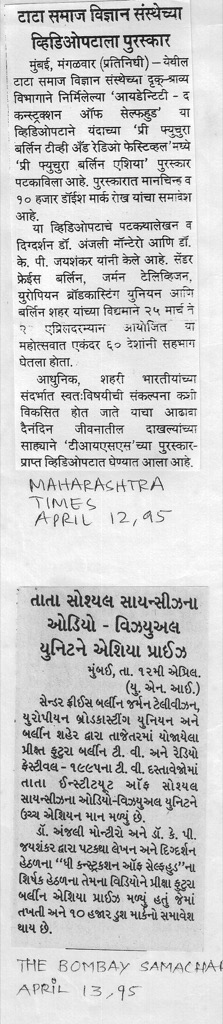 टाटा समाज विज्ञान संस्थेच्या
व्हिडिओपटाला पुरस्कार
मुंबई, मंगळवार (प्रतिनिधी) – येथील
टाटा समाज विज्ञान संस्थेच्या दृक्-श्राव्य
विभागाने निर्मिलेल्या 'आयडेन्टिटी - द
कन्स्ट्रक्शन ऑफ सेल्फहुड' या
व्हिडिओपटाने यंदाच्या 'प्री फ्युचुरा
बर्लिन टीव्ही अँड रेडिओ फेस्टिव्हल'मध्ये
'प्री फ्युचुरा बर्लिन एशिया' पुरस्कार
पटकाविला आहे. पुरस्कारात मानचिन्ह व
१० हजार डॉईश मार्क रोख यांचा समावेश
आहे.
या व्हिडिओपटाचे पटकथालेखन व
दिग्दर्शन डॉ. अंजली मॉन्टेरो आणि डॉ.
के. पी. जयशंकर यांनी केले आहे. सेंडर
फ्रेईस बर्लिन, जर्मन टेलिव्हिजन,
युरोपियन ब्रॉडकास्टिंग युनियन आणि
बर्लिन शहर यांच्या विद्यमाने २५ मार्च ते
२ एप्रिलदरम्यान आयोजित या
महोत्सवात एकंदर ६० देशांनी सहभाग
घेतला होता.
आधुनिक, शहरी भारतीयांच्या
संदर्भात स्वतःविषयीची संकल्पना कशी
विकसित होत जाते याचा आढावा
दैनंदिन जीवनातील दाखल्यांच्या
साह्याने 'टीआयएसएस'च्या पुरस्कार-
प्राप्त व्हिडिओपटात घेण्यात आला आहे.
MAHARASHTRA
TIMES
APRIL 12, 95
તાતા સોશ્યલ સાયન્સીઝના
ઓડિયો - વિઝયુઅલ
યુનિટને એશિયા પ્રાઈઝ
મુંબઈ, તા. ૧૨મી એપ્રિલ.
(યુ. એન. આઈ.)
સેન્ડર ફ્રીઈસ બર્લીન જર્મન ટેલીવીઝન,
યુરોપિયન બ્રોડકાસ્ટીંગ યુનિયન અને
બર્લીન શહેર દ્વારા તાજેતરમાં યોજાયેલા
પ્રીક્ષ ફુટુરા બર્લીન ટી. વી. અને રેડિયો
ફેસ્ટીવલ - ૧૯૯૫ના ટી. વી. દસ્તાવેજોમાં
તાતા ઈન્સ્ટીટયૂટ ઑફ સોશ્યલ
સાયન્સીઝના ઓડિયો-વિઝયુઅલ યુનિટને
ઉચ્ચ એશિયન માન મળ્યું છે.
ડૉ. અંજલી મોન્ટીરો અને ડૉ. કે. પી.
જયશંકર દ્વારા પટકથા લેખન અને દિગ્દર્શન
હેઠળના "ધી કન્સ્ટ્રકશન ઓફ સેલ્ફહુડ"ના
શિર્ષક હેઠળના તેમના વિડિયોને પ્રીક્ષા ફુટુરા
બર્લીન એશિયા પ્રાઈઝ મળ્યું હતું જેમાં
તખતી અને ૧૦ હજાર ડુશ માર્કનો સમાવેશ
થાય છે.
THE BOMBAY SAMACHAR
APRIL 13, 95